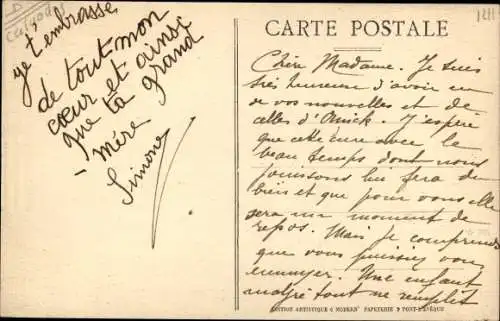 CARTE POSTALE
Chère Madame. Je suis
très heureuse d'avoir eu
de vos nouvelles et de
celles d'Annick. J'espère
que cette cure avec le
beau temps dont nous
jouissons lui fera du
bien et que pour vous elle
sera un moment de
repos. Mais je comprends
que vous puissiez vous
ennuyer. Une enfant
malgré tout ne remplit
je t'embrasse
de tout mon
cœur et ainsi
que ta grand
-mère
Simone
EDITION ARTISTIQUE « MODERN' PAPETERIE » PONT-L'EVEQUE